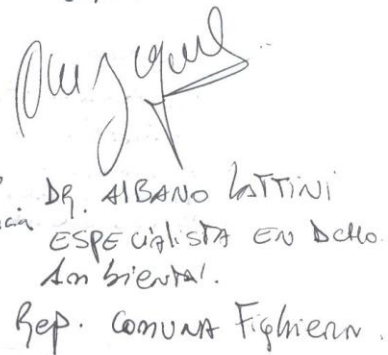 DR. AIBANO LATTINI
ESPECIALISTA EN DCHO.
Ambiental.
Rep. COMUNA Fighiera.